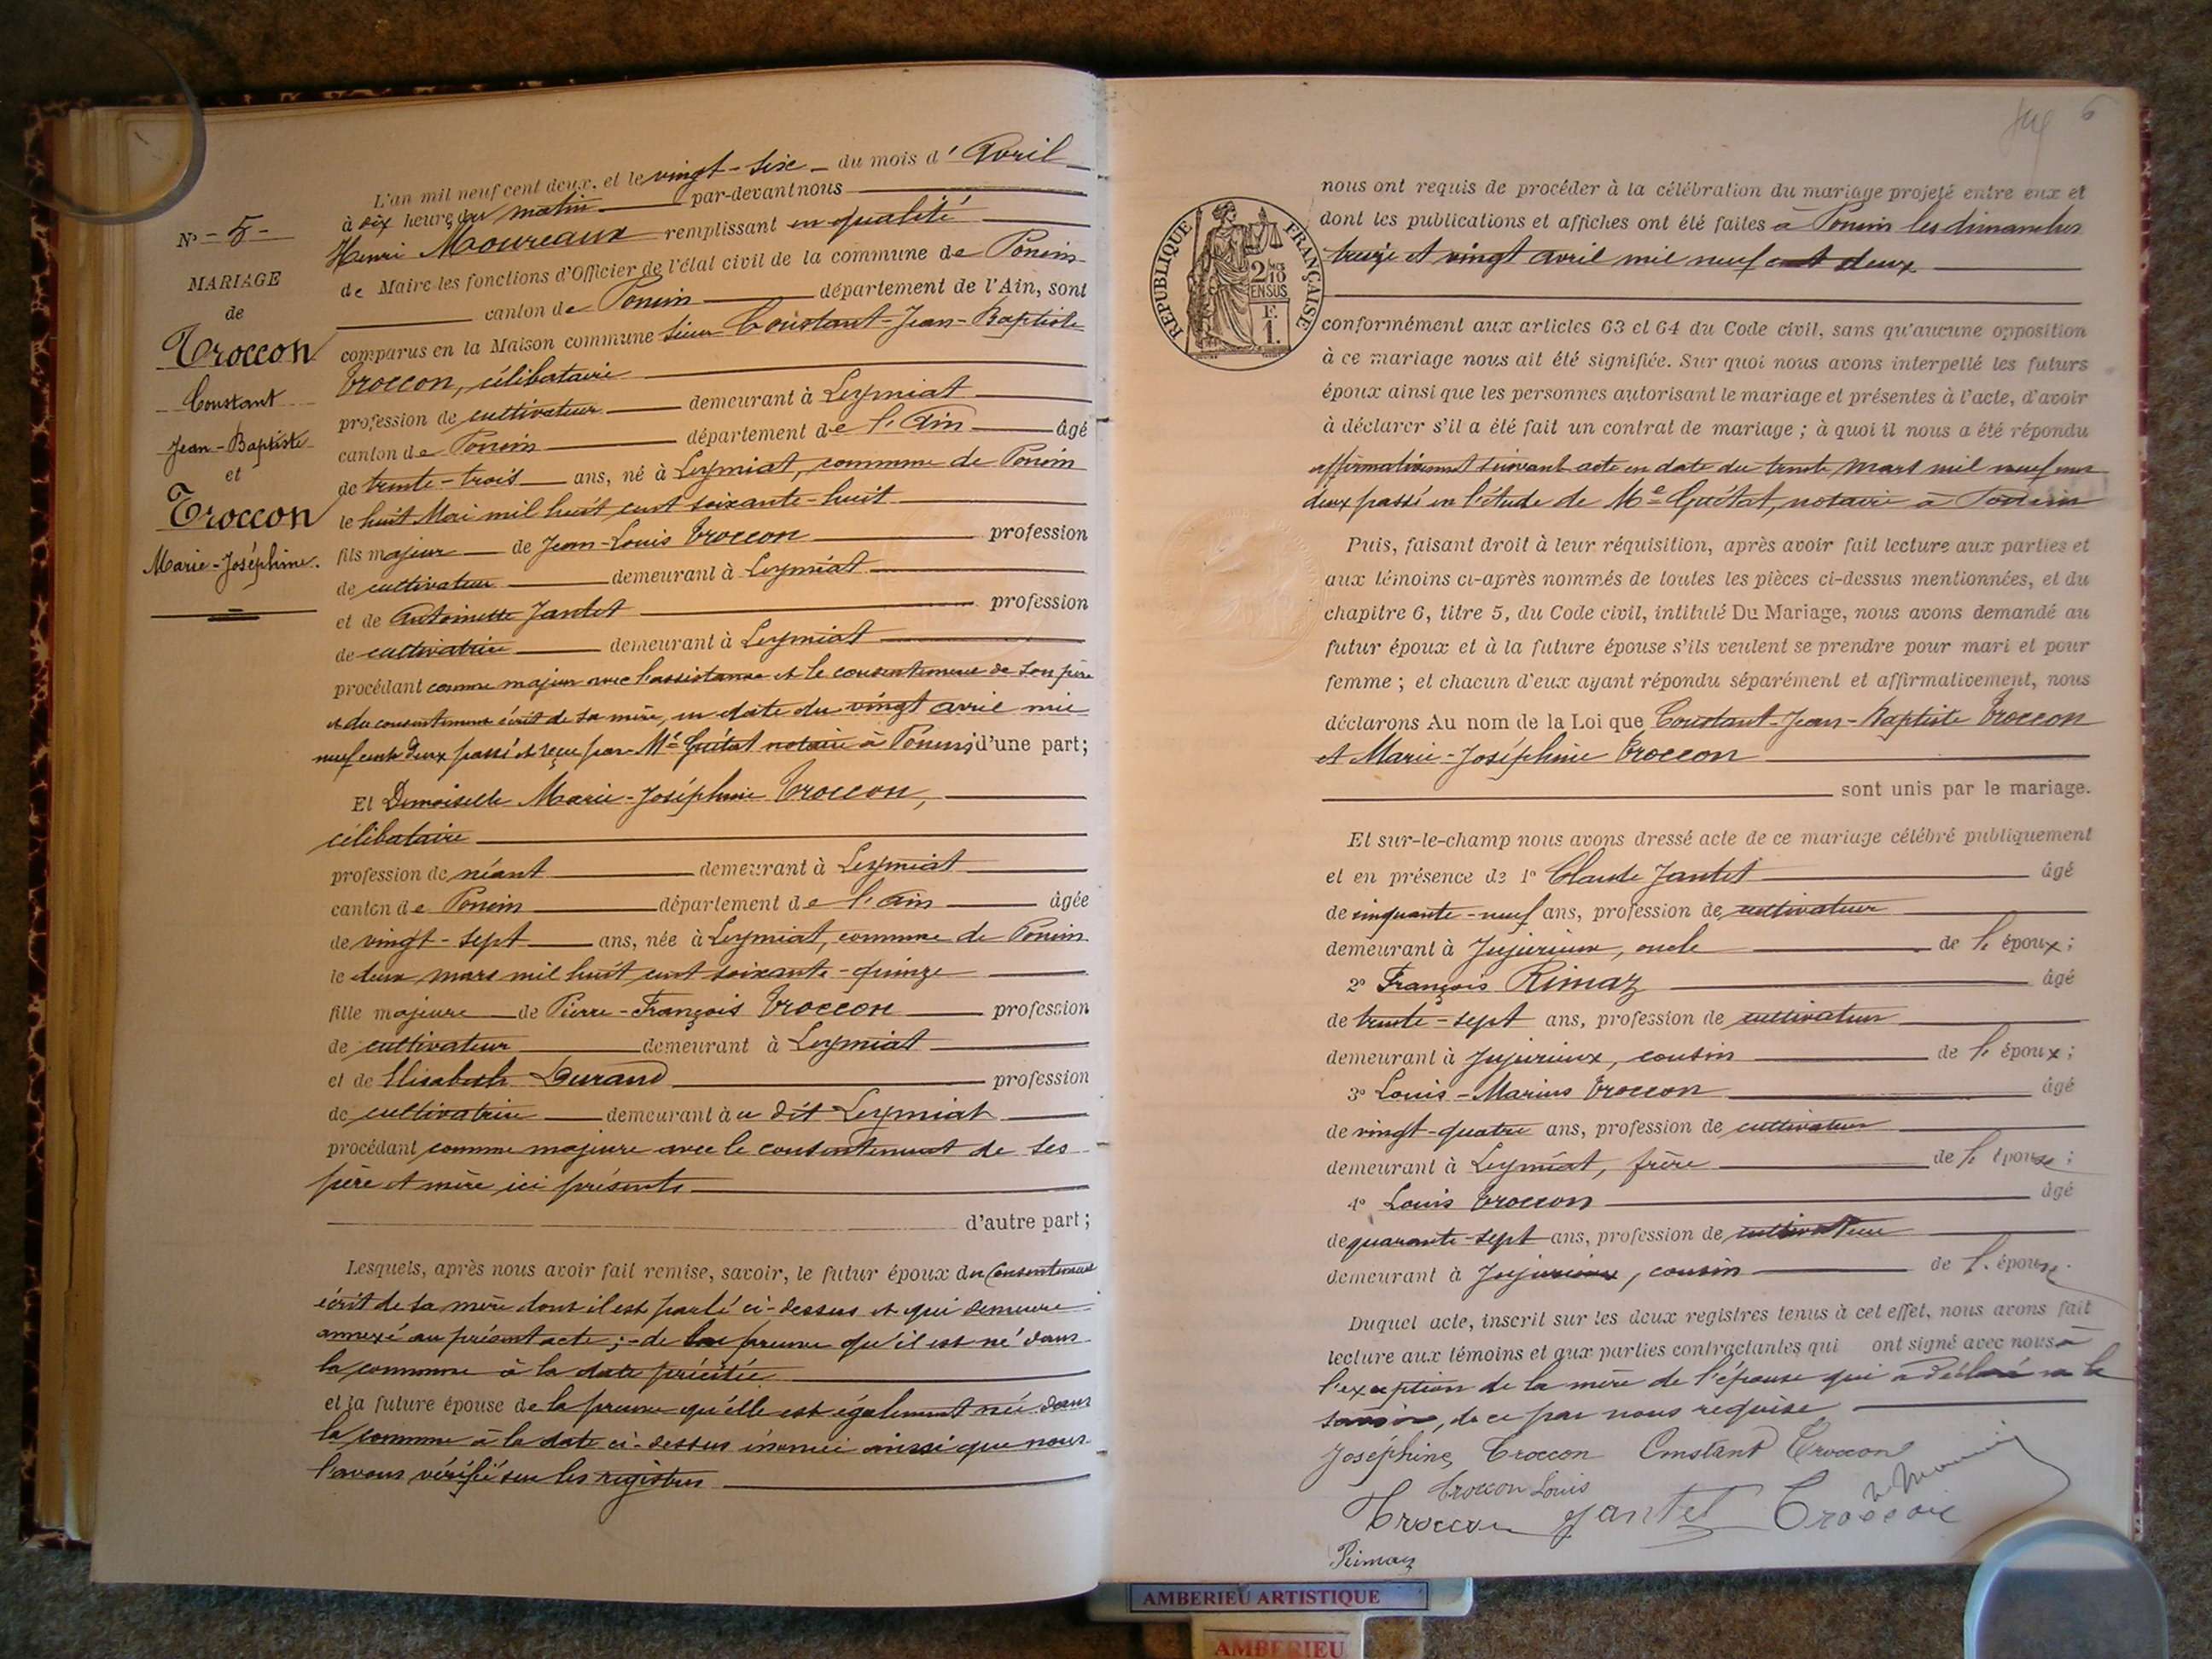 L'an mil neuf cent deux, et le vingt-six du mois d'Avril
à dix heures du matin par-devant nous
Henri Moureaux remplissant en qualité
de Maire les fonctions d'Officier de l'état civil de la commune de Poncin
canton de Poncin département de l'Ain, sont
comparus en la Maison commune sieur Constant-Jean-Baptiste
Troccon, célibataire
profession de cultivateur demeurant à Leymiat
canton de Poncin département de l'Ain âgé
de trente-trois ans, né à Leymiat, commune de Poncin
le huit Mai mil huit cent soixante-huit
fils majeur de Jean-Louis Troccon profession
de cultivateur demeurant à Leymiat
et de Antoinette Jantet profession
de cultivatrice demeurant à Leymiat
procédant comme majeur avec l'assistance et le consentement de son père
et du consentement écrit de sa mère, en date du vingt avril mil
neuf cent deux passé et reçu par Me Guétat notaire à Poncin; d'une part;
Et Demoiselle Marie-Joséphine Troccon,
célibataire
profession de néant demeurant à Leymiat
canton de Poncin département de l'Ain âgée
de vingt-sept ans, née à Leymiat, commune de Poncin
le deux mars mil huit cent soixante-quinze
fille majeure de Pierre-François Troccon profession
de cultivateur demeurant à Leymiat
et de Elisabeth Durand profession
de cultivatrice demeurant à u dit Leymiat
procédant comme majeure avec le consentement de ses
père et mère ici présents
d'autre part;
Lesquels, après nous avoir fait remise, savoir, le futur époux du consentement
écrit de sa mère dont il est parlé ci-dessus et qui demeure
annexé au présent acte; - de la preuve qu'il est né dans
la commune à la date précitée
et la future épouse de la preuve qu'elle est également née dans
la commune à la date ci-dessus énoncée ainsi que nous
l'avons vérifié sur les registres
No - 5 -
MARIAGE
de
Troccon
Constant
Jean-Baptiste
et
Troccon
Marie-Joséphine.
6
RÉPUBLIQUE FRANÇAISE
2/10
EN SUS
F.
1.
nous ont requis de procéder à la célébration du mariage projeté entre eux et
dont les publications et affiches ont été faites à Poncin les dimanches
treize et vingt avril mil neuf cent deux
conformément aux articles 63 et 64 du Code civil, sans qu'aucune opposition
à ce mariage nous ait été signifiée. Sur quoi nous avons interpellé les futurs
époux ainsi que les personnes autorisant le mariage et présentes à l'acte, d'avoir
à déclarer s'il a été fait un contrat de mariage; à quoi il nous a été répondu
affirmativement suivant acte en date du trente mars mil neuf cent
deux passé en l'étude de Me Guétat, notaire à Poncin
Puis, faisant droit à leur réquisition, après avoir fait lecture aux parties et
aux témoins ci-après nommés de toutes les pièces ci-dessus mentionnées, et du
chapitre 6, titre 5, du Code civil, intitulé Du Mariage, nous avons demandé au
futur époux et à la future épouse s'ils veulent se prendre pour mari et pour
femme; et chacun d'eux ayant répondu séparément et affirmativement, nous
déclarons Au nom de la Loi que Constant-Jean-Baptiste Troccon
et Marie-Joséphine Troccon
sont unis par le mariage.
Et sur-le-champ nous avons dressé acte de ce mariage célébré publiquement
et en présence de 1o Claude Jantet âgé
de cinquante-neuf ans, profession de cultivateur
demeurant à Jujurieux, oncle de l' époux;
2o François Rimaz âgé
de trente-sept ans, profession de cultivateur
demeurant à Jujurieux, cousin de l' époux;
3o Louis-Marius Troccon âgé
de vingt-quatre ans, profession de cultivateur
demeurant à Leymiat, frère de l' épouse;
4o Louis Troccon âgé
de quarante-sept ans, profession de cultivateur
demeurant à Jujurieux, cousin de l' épouse.
Duquel acte, inscrit sur les deux registres tenus à cet effet, nous avons fait
lecture aux témoins et aux parties contractantes qui ont signé avec nous à
l'exception de la mère de l'épouse qui a déclaré ne le
savoir, de ce par nous requise
Joséphine Troccon Constant Troccon
Troccon Louis
Troccon Jantet Troccon
Rimaz
AMBERIEU ARTISTIQUE
AMBERIEU